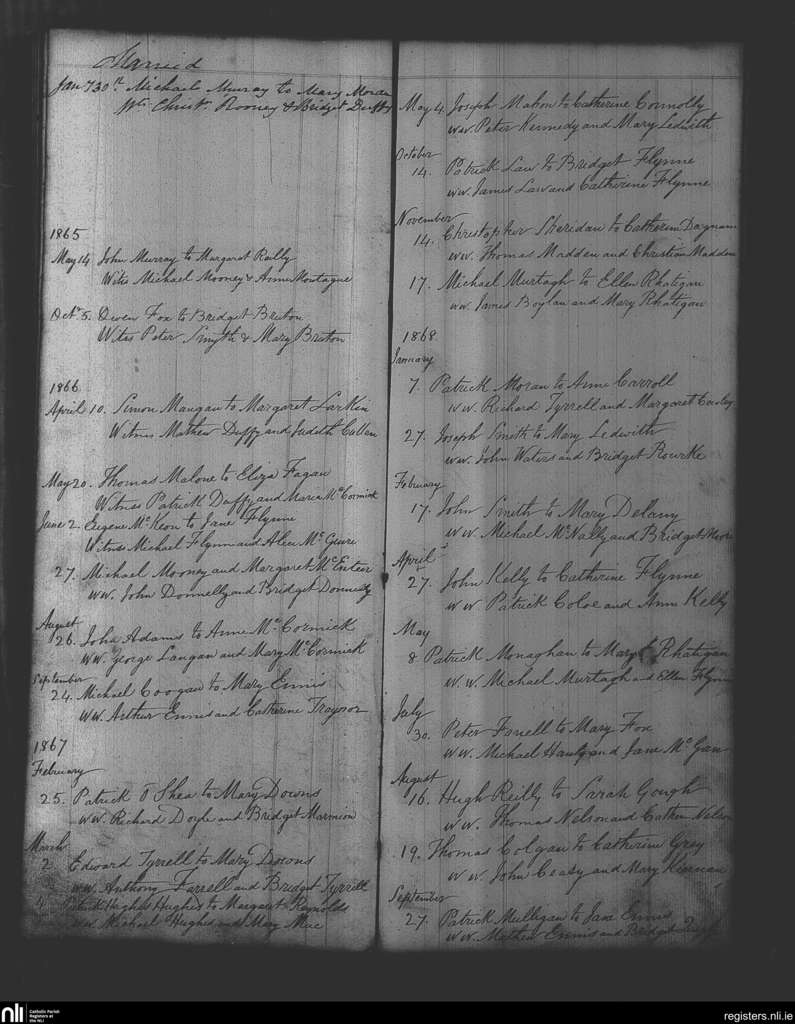 Married
Jany 30th Michael Murray to Mary Moran
Wts Christr. Rooney & Bridget Duffy
1865
May 14 John Murray to Margaret Reilly
Wites Michael Mooney & Anne Montague
Octr 5. Owen Fox to Bridget Bruton
Wites Peter Smyth & Mary Bruton
1866
April 10. Simon Mangan to Margaret Larkin
Witness Mathew Duffy and Judith Cullen
May 20. Thomas Malone to Eliza Fagan
Witness Patrick Duffy and Maria McCormick
June 2. Eugene McKeon to Jane Flynne
Witness Michael Flynn and Alice McGuire
27. Michael Mooney and Margaret McEnteer
ww. John Donnelly and Bridget Donnelly
August
26. John Adams to Anne McCormick
ww. George Langan and Mary McCormick
September
24. Michael Coogan to Mary Ennis
ww. Arthur Ennis and Catherine Traynor
1867
February
25. Patrick O Shea to Mary Downs
ww. Richard Doyle and Bridget Marmion
March
2 Edward Tyrrell to Mary Downs
ww. Anthony Farrell and Bridget Tyrrell
4 Patrick Hughes Hughes to Margaret Reynolds
ww. Michael Hughes and Mary Mac
May 4 Joseph Mahon to Catherine Connolly
ww. Peter Kennedy and Mary Ledwith
October
14. Patrick Law to Bridget Flynne
ww. James Law and Catherine Flynne
November
14. Christopher Sheridan to Catherin Dagnam
ww. Thomas Madden and Christian Madden
17. Michael Murtagh to Ellen Rhatigan
ww. James Boylan and Mary Rhatigan
1868
January
7. Patrick Moran to Anne Carroll
ww. Richard Tyrrell and Margaret
27. Joseph Smith to Mary Ledwith
ww. John Waters and Bridget Rourke
February
17. John Smith to Mary Delany
ww. Michael McNally and Bridget Moore
April
27. John Kelly to Catherine Flynne
ww Patrick Coloe and Ann Kelly
May
8 Patrick Monaghan to Mary Rhatigan
w.w. Michael Murtagh and Ellen Flynn
July
30. Peter Farrell to Mary Fox
ww. Michael and Jane McGan
August
16. Hugh Reilly to Sarah Gough
ww. Thomas Nelson and Cathen Nelson
19. Thomas Colgan to Catherin Grey
w w. John Ceasy and Mary Kiernan
September
27. Patrick Mulligan to Jane Ennis
ww. Mathew Ennis and Bridget
nli
Catholic Parish
Registers at
the NLI
registers.nli.ie